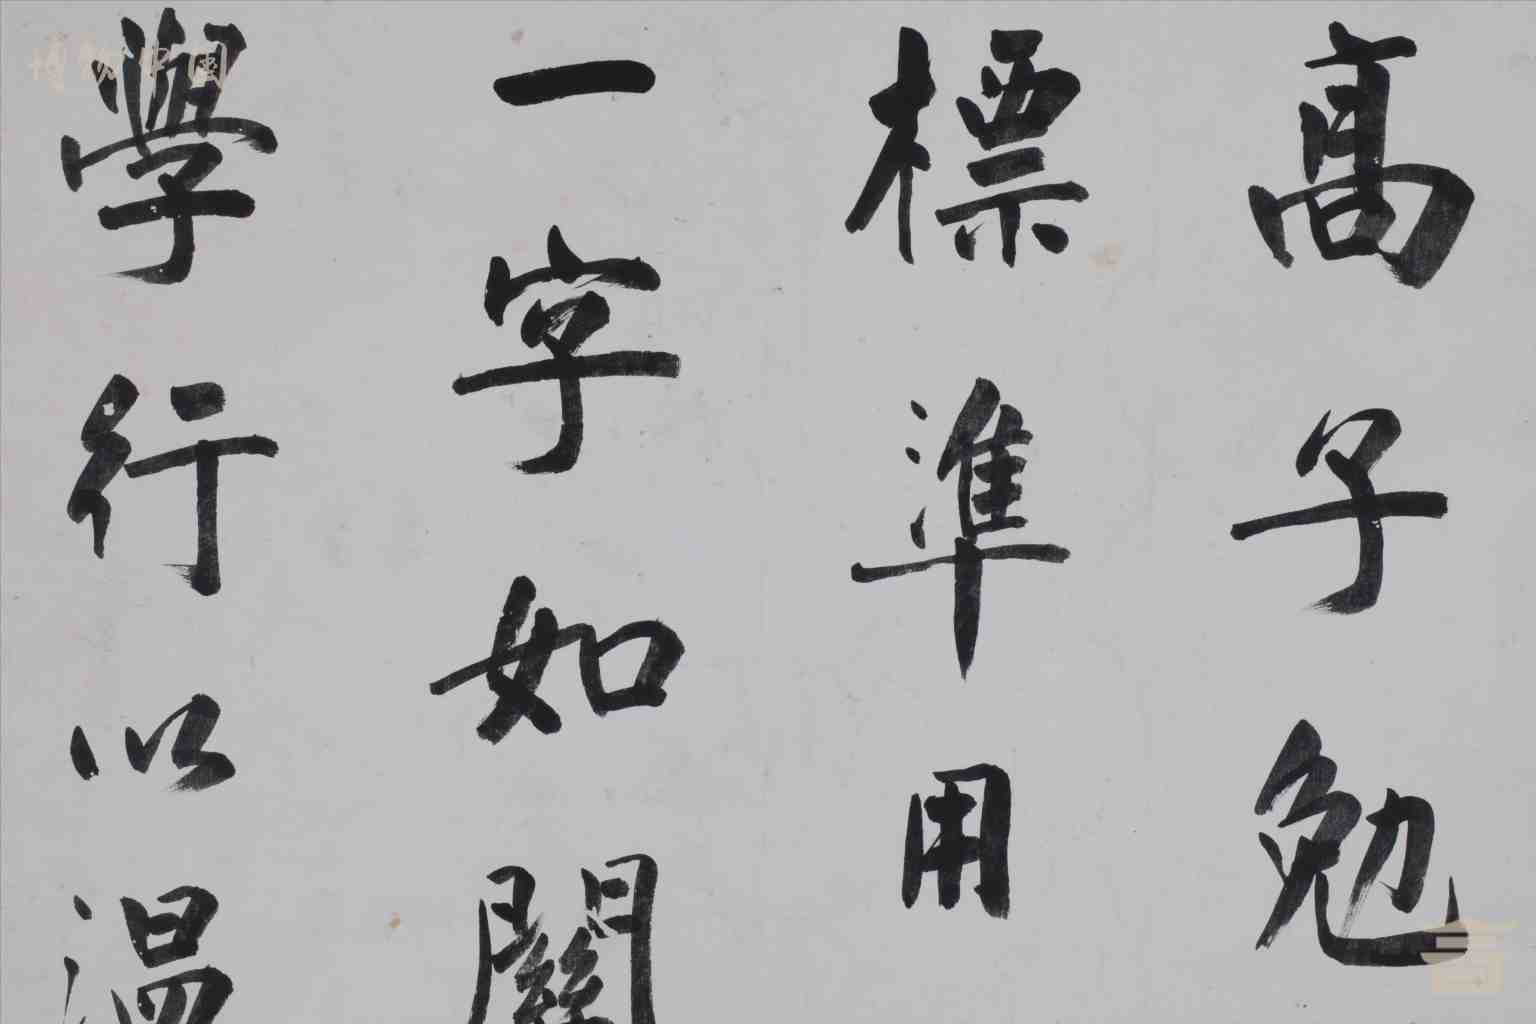 高子勉
標準用
一字如關
學行以温
博物中国